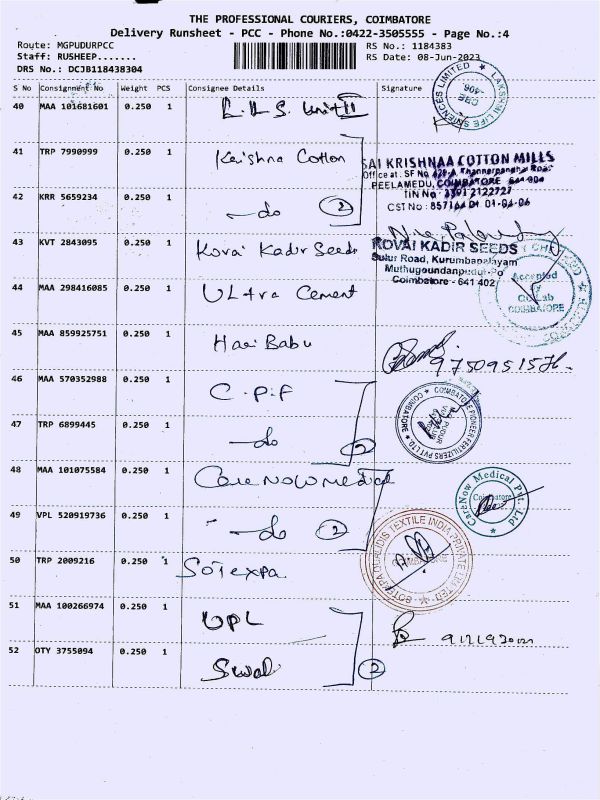 THE PROFESSIONAL COURIERS, COIMBATORE
Delivery Runsheet - PCC - Phone No.:0422-3505555 - Page No.:4
Route: MGPUDURPCC RS No.: 1184383
Staff: RUSHEEP....... RS Date: 08-Jun-2023
DRS No.: DCJB118438304
S No Consignment No Weight PCS Consignee Details Signature
40 MAA 101681601 0.250 1 L.L.S. Unit II
LAKSHMI LIFE SCIENCES LIMITED
CBE
41 TRP 7990999 0.250 1 Krishna Cotton
SAI KRISHNAA COTTON MILLS
Office at : SF No
PEELAMEDU, COIMBATORE
TIN No
CST No : 857144 Dt 01-04-06
42 KRR 5659234 0.250 1 - do 2
43 KVT 2843095 0.250 1 Kovai Kadir Seeds
KOVAI KADIR SEEDS
Sulur Road, Kurumbapalayam
Muthugoundanpudur-Po
Coimbatore - 641 402
44 MAA 298416085 0.250 1 ULtra Cement
Accepted
by
Lab
COIMBATORE
45 MAA 859925751 0.250 1 Hari Babu
46 MAA 570352988 0.250 1 C.P.F
COIMBATORE PIONEER FERTILIZERS PVT LTD
47 TRP 6899445 0.250 1 - do 2
48 MAA 101075584 0.250 1 CareNowmedical
CareNow Medical Pvt. Ltd
Coimbatore
49 VPL 520919736 0.250 1 " - do 2
TEXTILE INDIA PRIVATE LIMITED
COIMBATORE
50 TRP 2009216 0.250 1 Sotexpa
51 MAA 100266974 0.250 1 UPL
52 OTY 3755094 0.250 1 Swal 2